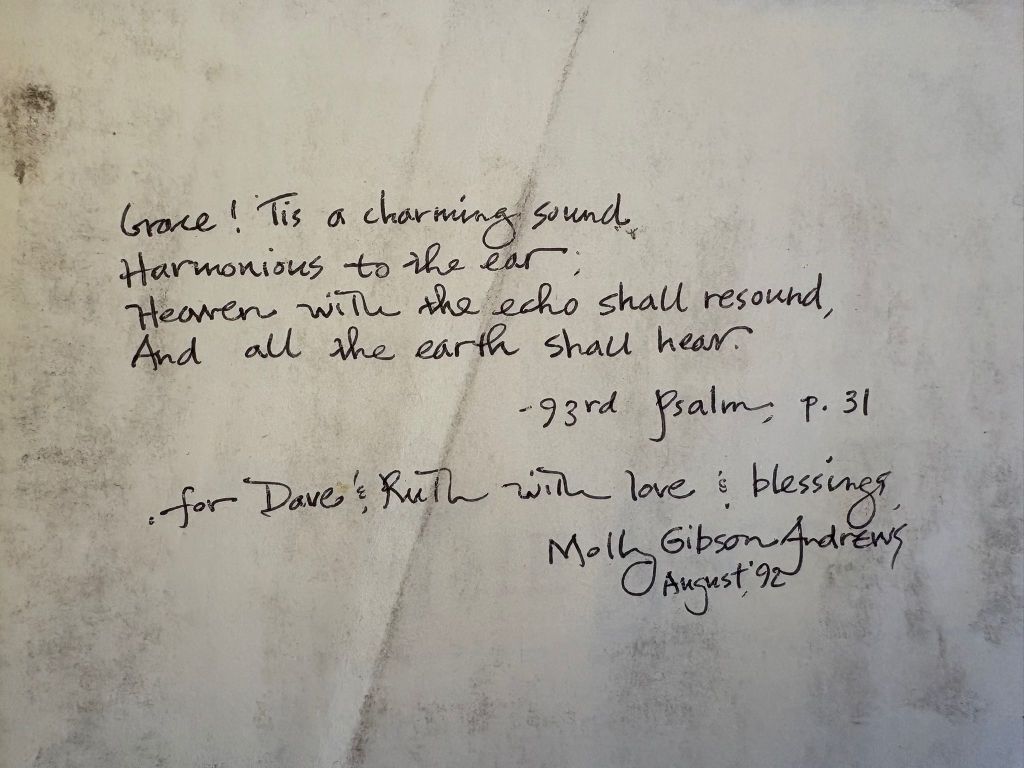 Grace! Tis a charming sound,
Harmonious to the ear;
Heaven with the echo shall resound,
And all the earth shall hear.
-93rd Psalm, p. 31
for Dave & Ruth with love & blessings,
Molly Gibson Andrews
August, '92